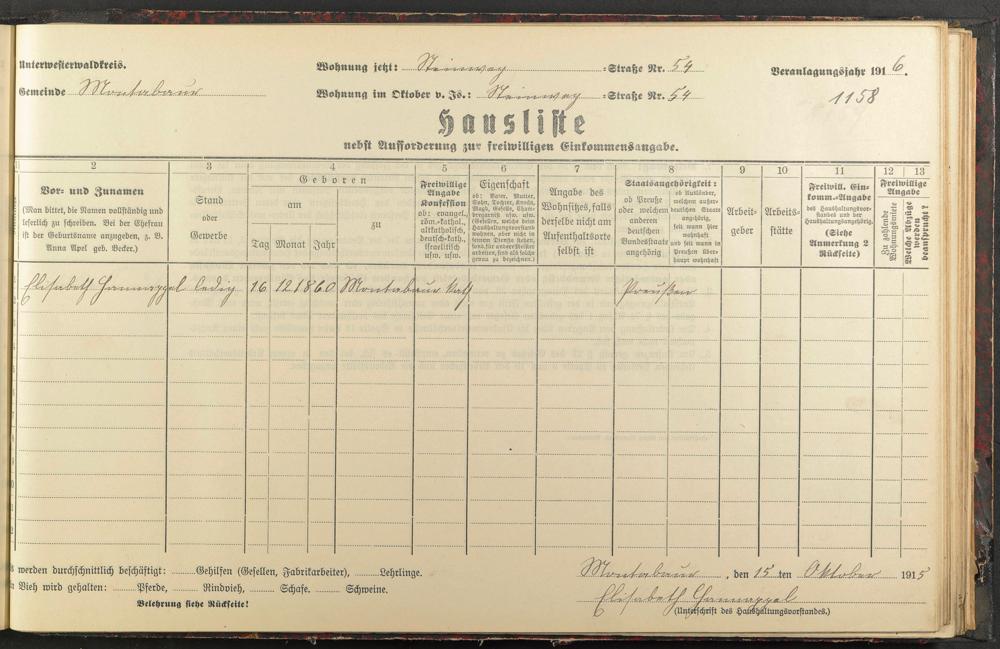 Unterwesterwaldkreis.
Wohnung jetzt: Steinweg =Straße Nr. 54
Veranlagungsjahr 1916.
Gemeinde Montabaur
Wohnung im Oktober v. Js.: Steinweg =Straße Nr. 54
1158
Hausliste
nebst Aufforderung zur freiwilligen Einkommensangabe.
2 3 4 5 6 7 8 9 10 11 12 13
Vor- und Zunamen
(Man bittet, die Namen vollständig und
leserlich zu schreiben. Bei der Ehefrau
ist der Geburtsname anzugeben, z. B.
Anna Apel geb. Becker.)
Stand
oder
Gewerbe
Geboren
am
zu
Tag Monat Jahr
Freiwillige
Angabe
Konfession
ob: evangel.,
röm.-kathol.,
altkatholisch,
deutsch-kath.,
israelitisch
usw. usw.
Eigenschaft
ob: Vater, Mutter,
Sohn, Tochter, Knecht,
Magd, Geselle, Cham-
bregarnist usw. usw.
Angabe des
Wohnsitzes, falls
derselbe nicht am
Aufenthaltsorte
selbst ist
Staatsangehörigkeit:
ob Preuße
oder welchem
anderen
deutschen
Bundesstaate
angehörig
ob Ausländer,
welchem außer-
deutschen Staate
angehörig,
seit wann hier
wohnhaft
und seit wann in
Preußen über-
haupt wohnhaft
Arbeit-
geber
Arbeits-
stätte
Freiwill. Ein-
komm.-Angabe
des Haushaltungsvor-
standes und der
Haushaltungsangehörig.
(Siehe
Anmerkung 2
Rückseite)
Freiwillige
Angabe
Zu zahlende
Wohnungsmiete
Welche Abzüge
werden
beansprucht?
Elisabeth Hannappel ledig 16 12 1860 Montabaur kath. Preußen
werden durchschnittlich beschäftigt: Gehilfen (Gesellen, Fabrikarbeiter), Lehrlinge.
Vieh wird gehalten: Pferde, Rindvieh, Schafe. Schweine.
Belehrung siehe Rückseite!
Montabaur, den 15 ten Oktober 1915
Elisabeth Hannappel
(Unterschrift des Haushaltungsvorstandes.)